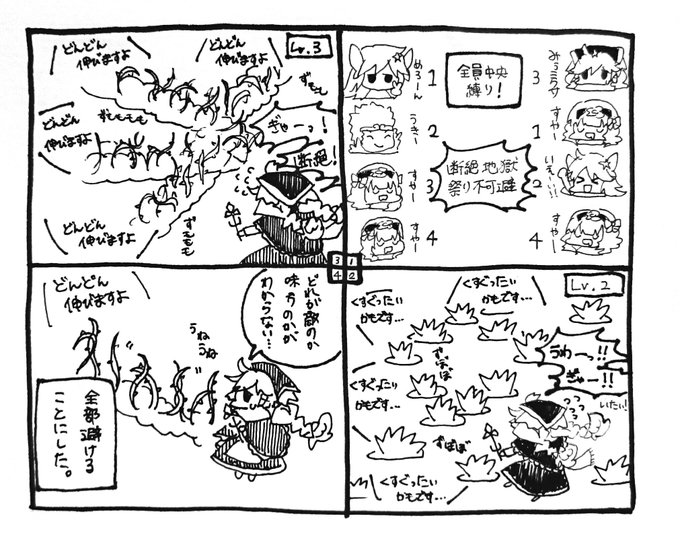 全員中央
縛り！
めろーん
1
うきー
2
すやー
3
すやー
4
3
すやー
1
2
すやー
4
断絶地獄
祭り不可避
Lv.2
くすぐったい
かもです…
くすぐったい
かもです…
くすぐったい
かもです…
くすぐったい
かもです…
ずばば
ずばば
うわー！！
ぎゃー！！
いたい！
Lv.3
どんどん
伸びますよ
どんどん
伸びますよ
どんどん
伸びますよ
どんどん
伸びますよ
ずももも
ずももも
ぎゃーっ！
断絶！
3
1
4
2
どんどん
伸びますよ
うねうね
どれが敵のか
味方のかが
わからない…
全部避ける
ことにした。